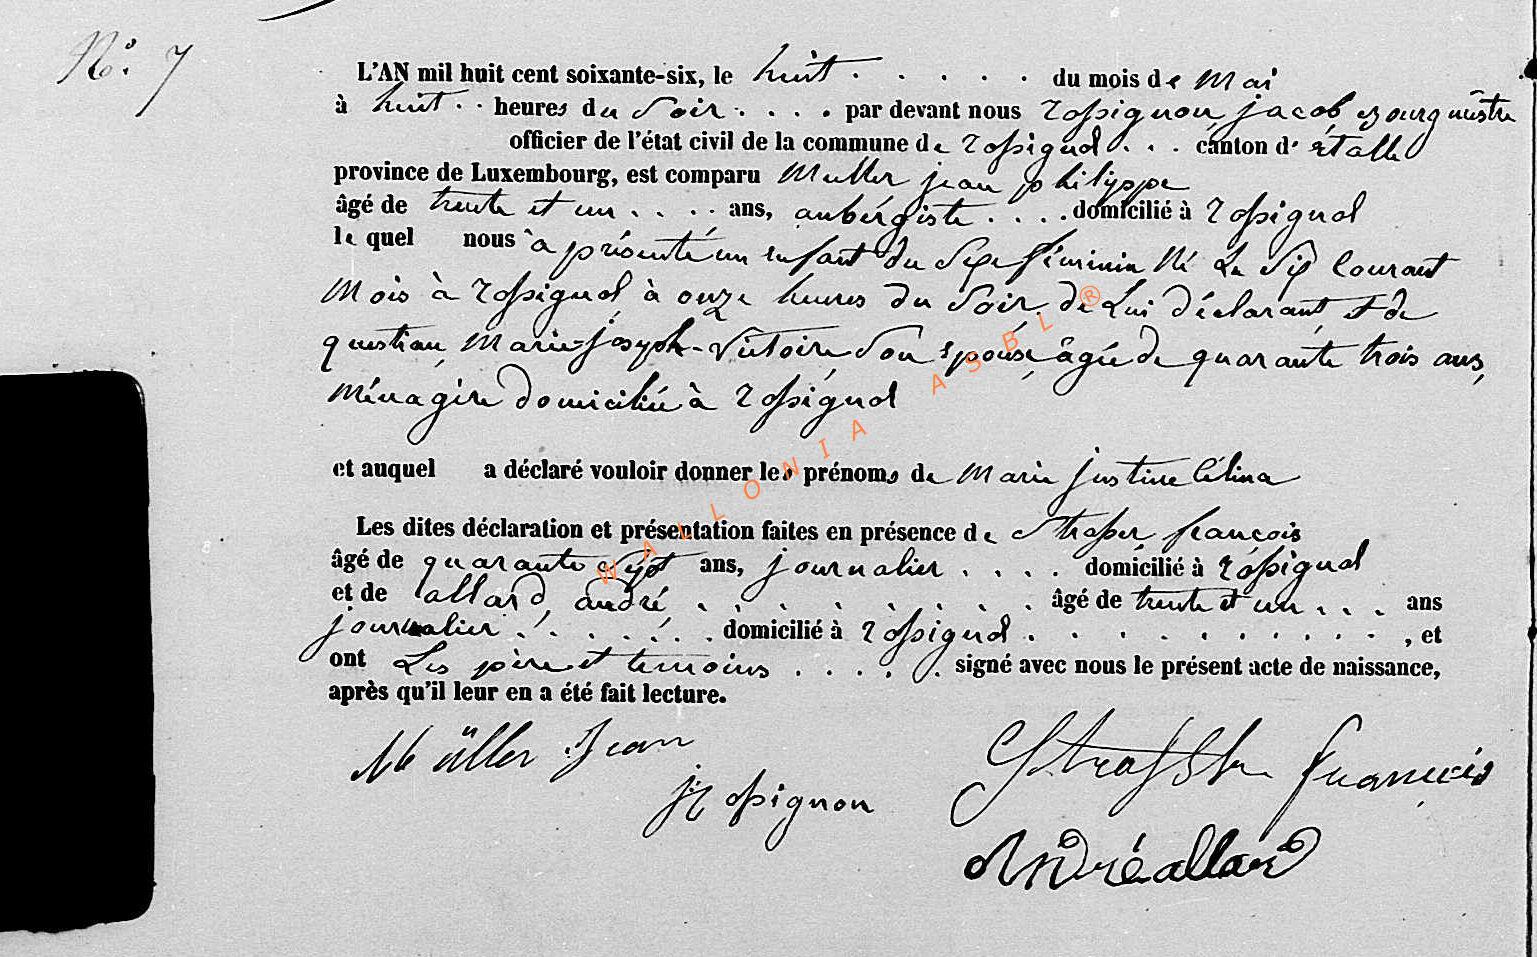 N°. 7
L'AN mil huit cent soixante-six, le huit . . . . . du mois de Mai
à huit . . heures du Soir . . . . par devant nous rossignon jacob bourgmestre
officier de l'état civil de la commune de rossignol . . . canton d' étalle
province de Luxembourg, est comparu Muller jean philippe
âgé de trente et un . . . . ans, aubergiste . . . . domicilié à rossignol
le quel nous a présenté un enfant du Sexe féminin Né Le Six Courant
Mois à rossignol à onze heures du Soir, de Lui déclarant et de
questiau Marie-joseph-Victoire Son épouse âgée de quarante trois ans,
Ménagère domiciliée à rossignol
et auquel a déclaré vouloir donner les prénoms de Marie justine Célina
Les dites déclaration et présentation faites en présence de Strasser françois
âgé de quarante Sept ans, journalier . . . . domicilié à rossignol
et de allard, andré . . . . . . . . âgé de trente et un . . . ans
journalier . . . . . . domicilié à rossignol . . . . . . . . . . . , et
ont Les père et temoins . . . . . signé avec nous le présent acte de naissance,
après qu'il leur en a été fait lecture.
Müller Jean
Strasser francois
jrossignon
André allard
WALLONIA ASBL ®